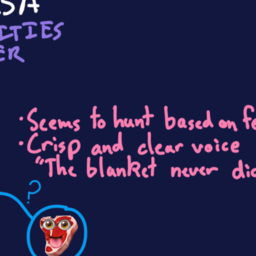 ITIES
ER
• Seems to hunt based on
• Crisp and clear voice
"The blanket never
?